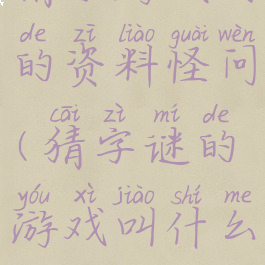 de zī liào guài wèn
的资料怪问
cāi zì mí de
(猜字谜的
yóu xì jiào shí me
游戏叫什么